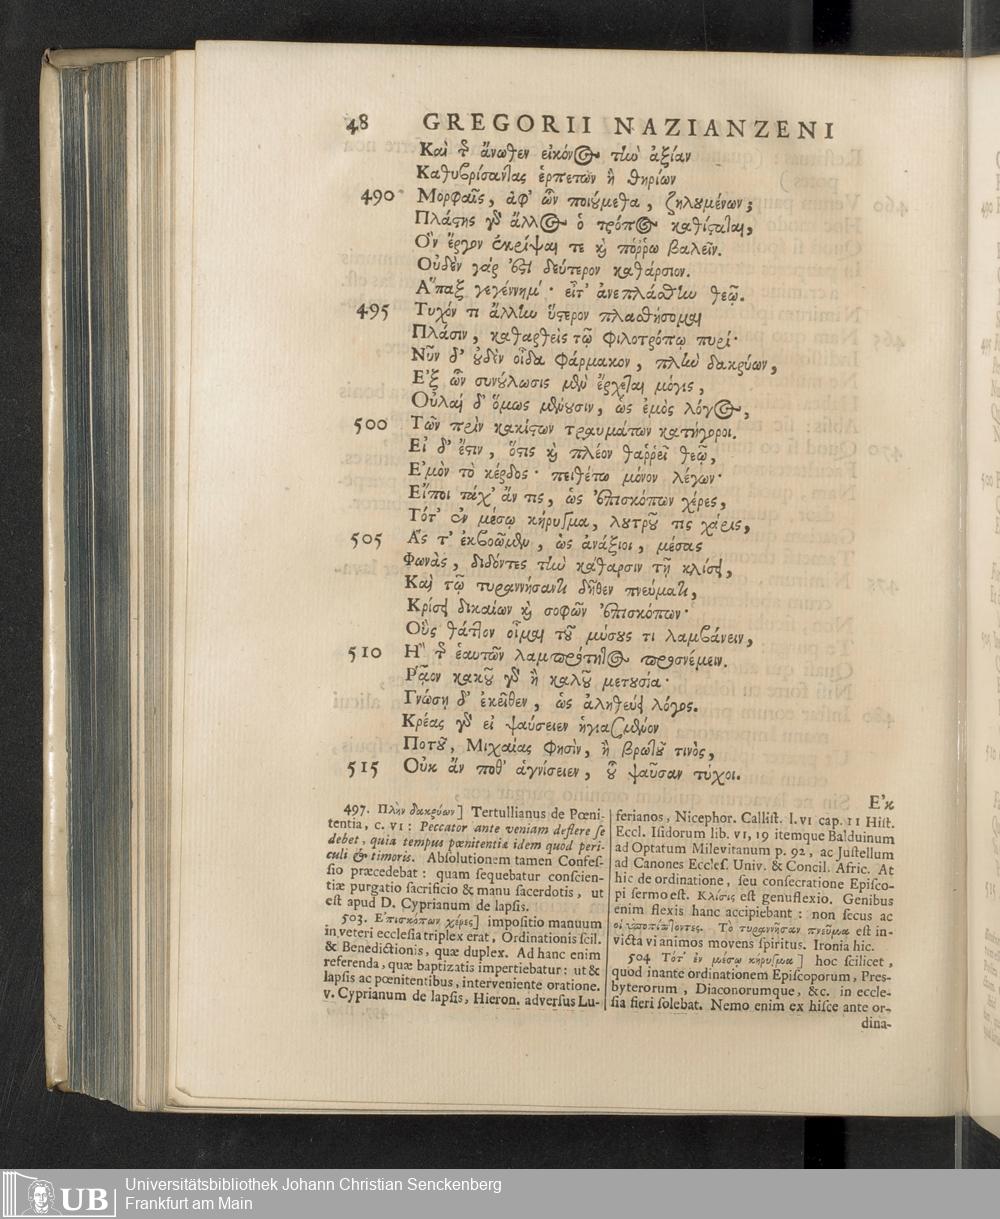 48 GREGORII NAZIANZENI
Καὶ τ̃ ἄνωθεν εἰκόνος τὴν ἀξίαν
Καθυβρίσαντας ἑρπετῶν ἢ θηρίων
490 Μορφαῖς, ἀφ' ὧν ποιούμεθα, ζηλουμένων;
Πλάστης γὸ ἄλλος ὁ τρόπος καθίσταται,
Ὃν ἔργον ἐκρίψαι τε καὶ πόῤῥω βαλεῖν.
Οὐδὲν γάρ ἐστι δεύτερον καθάρσιον.
Ἅπαξ γεγέννημ'· εἶτ' ἀνεπλάσθην θεῷ.
495 Τυχόν τι ἄλλην ὕστερον πλασθήσομαι
Πλάσιν, καθαρθεὶς τῷ Φιλοτρόπῳ πυρί·
Νῦν δ' οὐδὲν οἶδα Φάρμακον, πλὴν δακρύων,
Ἐξ ὧν συνούλωσις μὲν ἔρχεται μόγις,
Οὐλαὶ δ' ὅμως μένουσιν, ὡς ἐμὸς λόγος,
500 Τῶν πρὶν κακίστων τραυμάτων κατήγοροι.
Εἰ δ' ἔστιν, ὅστις καὶ πλέον θαῤῥεῖ θεῷ,
Ἐμὸν τὸ κέρδος· πειθέτω μόνον λέγων·
Εἴποι τάχ' ἄν τις, ὡς ἐπισκόπων χέρες,
Τότ' ἐν μέσῳ κήρυγμα, λουτροῦ τις χάρις,
505 Ἃς τ' ἐκβοῶμεν, ὡς ἀνάξιοι, μέσας
Φωνὰς, διδόντες τὴν κάθαρσιν τῇ κλίσει,
Καὶ τῷ τυραννήσαντι δῆθεν πνεύματι,
Κρίσει δικαίων καὶ σοφῶν ἐπισκόπων·
Οὓς θᾶττον οἶμαι τοῦ μύσους τι λαμβάνειν,
510 Ἢ τ̃ ἑαυτῶν λαμπρότητος προσνέμειν.
Ῥᾷον κακοῦ γὸ ἢ καλοῦ μετουσία·
Γνώσῃ δ' ἐκεῖθεν, ὡς ἀληθεύει λόγος.
Κρέας γὸ εἰ ψαύσειεν ἡγιασμένον
Ποτοῦ, Μιχαίας Φησὶν, ἢ βρωτοῦ τινὸς,
515 Οὐκ ἄν ποθ' ἁγνίσειεν, οὗ ψαῦσαν τύχοι.
Ἐκ
497. Πλὴν δακρύων] Tertullianus de Pœni-
tentia, c. VI: Peccator ante veniam deflere se
debet, quia tempus pœnitentiæ idem quod peri-
culi & timoris. Absolutionem tamen Confes-
sio præcedebat: quam sequebatur conscien-
tiæ purgatio sacrificio & manu sacerdotis, ut
est apud D. Cyprianum de lapsis.
503. Ἐπισκόπων χέρες] impositio manuum
in veteri ecclesia triplex erat, Ordinationis scil.
& Benedictionis, quæ duplex. Ad hanc enim
referenda, quæ baptizatis impertiebatur: ut &
lapsis ac pœnitentibus, interveniente oratione.
v. Cyprianum de lapsis, Hieron. adversus Lu-
ferianos, Nicephor. Callist. l. VI cap. 11 Hist.
Eccl. Isidorum lib. VI, 19 itemque Balduinum
ad Optatum Milevitanum p. 92, ac Justellum
ad Canones Eccles. Univ. & Concil. Afric. At
hic de ordinatione, seu consecratione Episco-
pi sermo est. Κλίσις est genuflexio. Genibus
enim flexis hanc accipiebant: non secus ac
οἱ ὑποπίπτοντες. Τὸ τυραννῆσαν πνεῦμα est in-
victa vi animos movens spiritus. Ironia hic.
504 Τότ' ἐν μέσῳ κήρυγμα] hoc scilicet,
quod inante ordinationem Episcoporum, Pres-
byterorum, Diaconorumque, &c. in eccle-
sia fieri solebat. Nemo enim ex hisce ante or-
dina-
UB Universitätsbibliothek Johann Christian Senckenberg
Frankfurt am Main